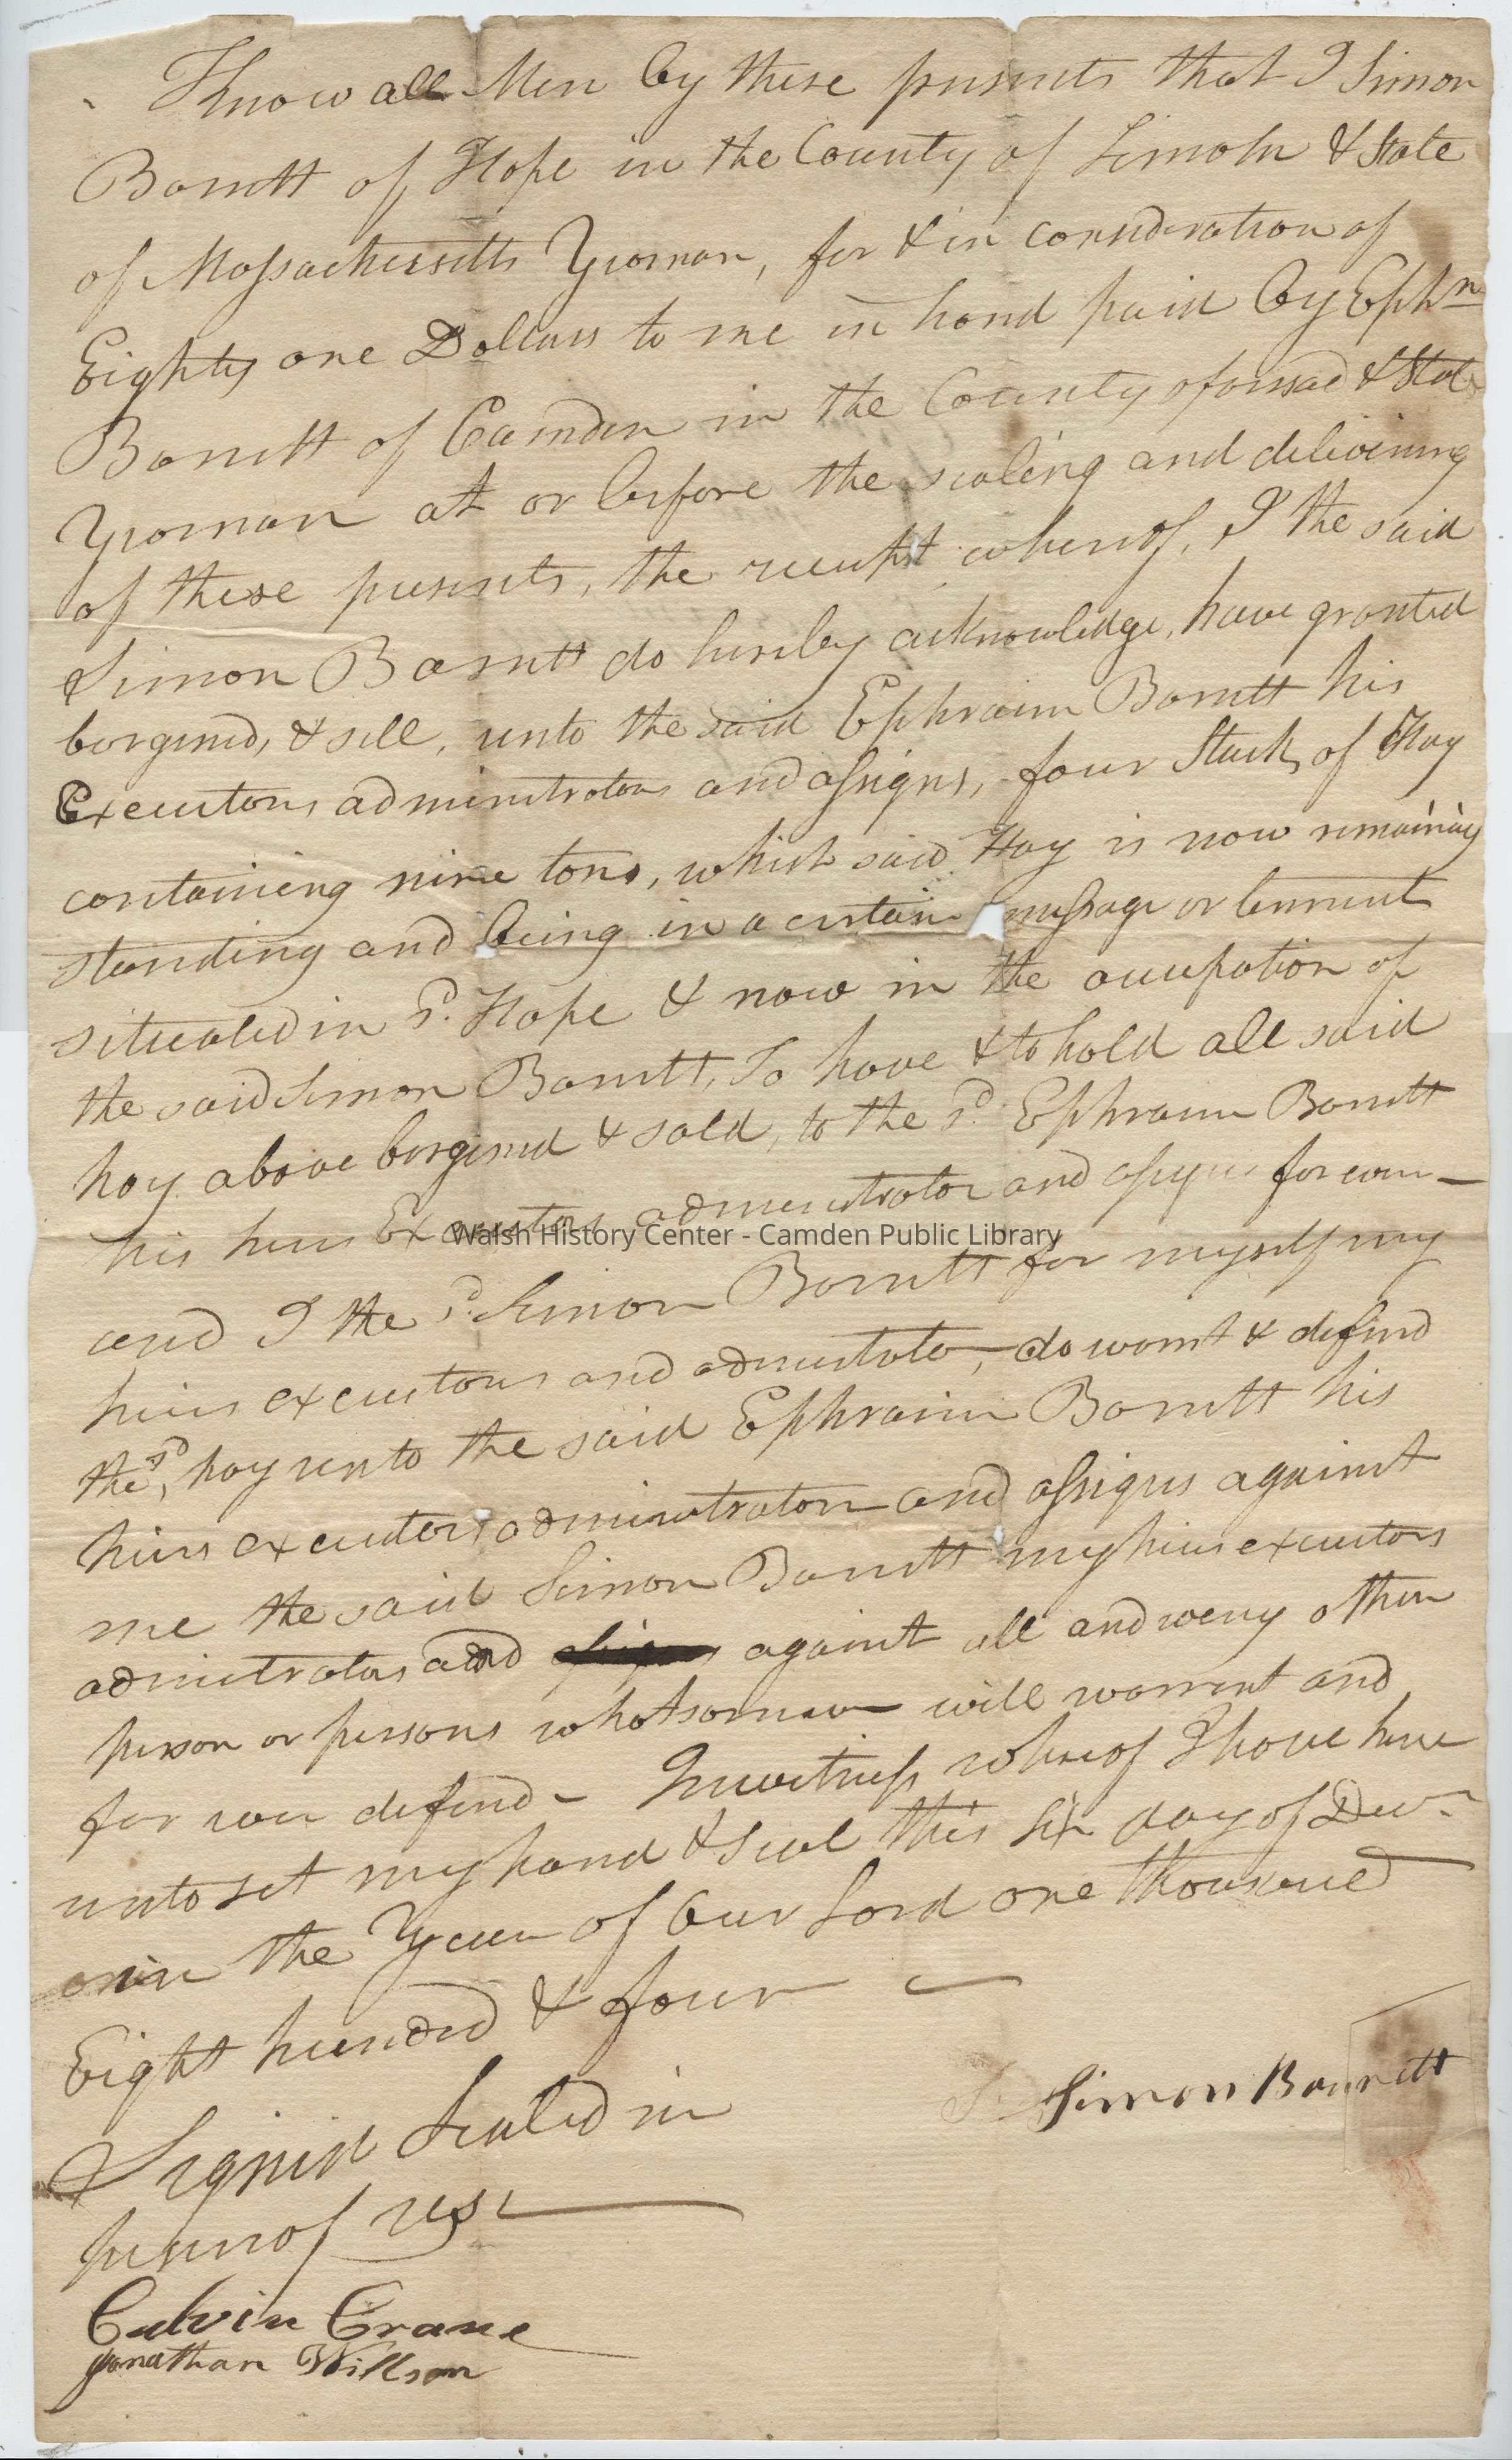 Know all Men by these presents that I Simon
Barrett of Hope in the County of Lincoln & State
of Massachusetts Yeoman, for & in consideration of
Eighty one Dollars to me in hand paid by Ephm
Barrett of Camden in the County aforesaid & State
Yeoman at or before the sealing and delivering
of these presents, the receipt whereof, I the said
Simon Barrett do hereby acknowledge, have granted
bargened, & sell, unto the said Ephraim Barrett his
Executors administrators and assigns, four Stacks of Hay
containing nine tons, which said Hay is now remaining
standing and being in a certain message or tennent
situated in sd. Hope & now in the occupation of
the said Simon Barrett, To have & to hold all said
hay above bargened & sold, to the sd. Ephraim Barrett
his heirs Executors administrator and assigns forever —
Walsh History Center - Camden Public Library
and I the sd. Simon Barrett for myself my
heirs executors and do warrnt & defend
the sd, hay unto the said Ephraim Barrett his
heirs executors administrators and assigns against
me the said Simon Barrett my heirs executors
admistrators and against all and every other
person or persons whatsomever will warrent and
for ever defend - In witness whereof I have here
unto set my hand & Seal this six day of Decr
in the Year of Our Lord one thousand
Eight hundred & four
Signed Sealed in
presenc of us
Simon Barrett
Calvin Crane
Jonathan Willson